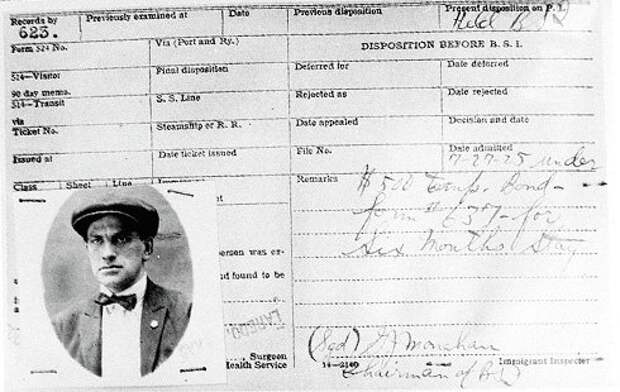 Records by Previously examined at Date Previous disposition Present disposition on P. I.
623. Held B S I
Form 524 No. Via (Port and Ry.) DISPOSITION BEFORE B. S. I.
514—Visitor Final disposition Deferred for Date deferred
90 day memo.
514—Transit S. S. Line Rejected as Date rejected
via
Ticket No. Steamship or R. R. Date appealed Decision and date
Issued at Date ticket issued File No. Date admitted
7-27-25 under
Class Sheet Line Remarks $500 Temp. Bond-
form # 637- for
six Months Stay
erson was ex-
d found to be
Surgeon
Health Service
(Sgd) Monahan
14-2140 Immigrant Inspector
Chairman of